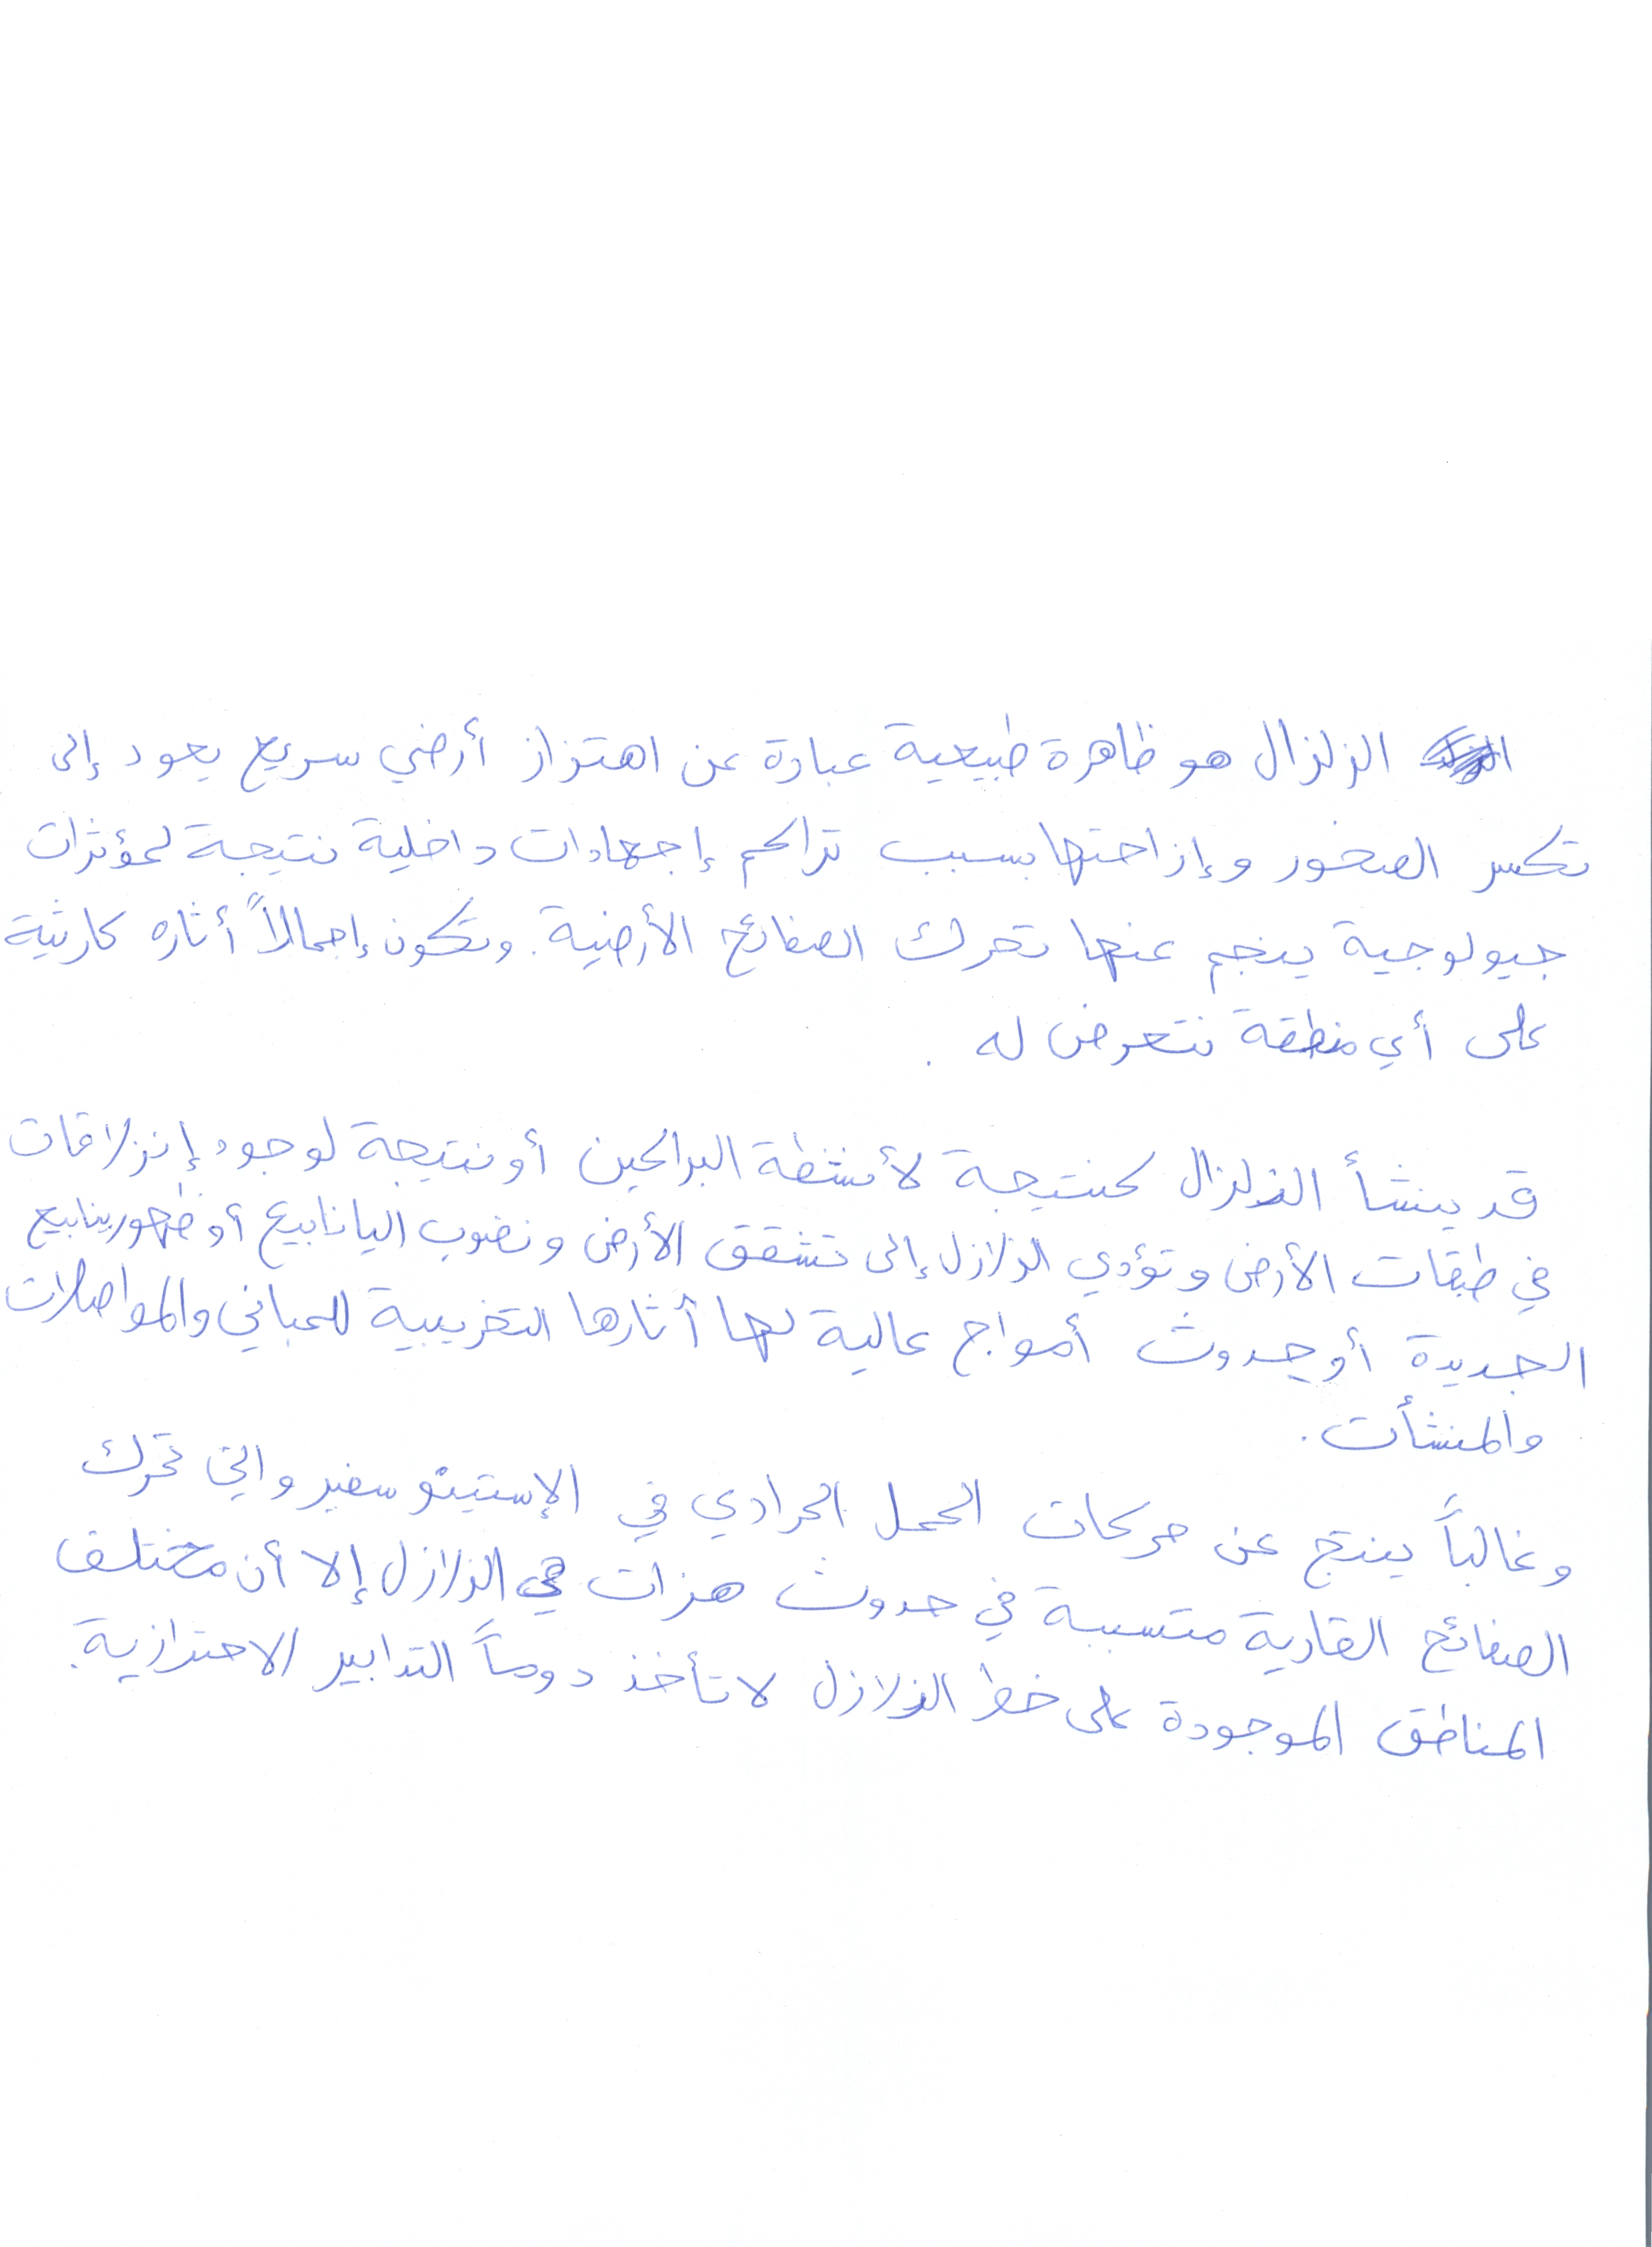 الزلزال هو ظاهرة طبيعية عبارة عن اهتزاز أرضي سريع يعود إلى
تكسر الصخور وإزاحتها بسبب تراكم إجهادات داخلية نتيجة لمؤثرات
جيولوجية ينجم عنها تحرك الصفائح الأرضية. وتكون إجمالاً أثاره كارثية
على أي منطقة تتعرض له .
قد ينشأ الزلزال كنتيجة لأنشطة البراكين أو نتيجة لوجود إنزلاقات
في طبقات الأرض وتؤدي الزلازل إلى تشقق الأرض ونضوب اليانابيع أو ظهور ينابيع
الجديدة أو حدوث أمواج عالية لها أثارها التخريبية للمباني والمواصلات
والمنشأت.
وغالباً ينتج عن حركات الحمل الحراري في الإستينوسفير والتي تحرك
الصفائح القارية متسببة في حدوث هزات هي الزلازل إلا أن مختلف
المناطق الموجودة على خط الزلازل لا تأخذ دوماً التدابير الاحترازية.